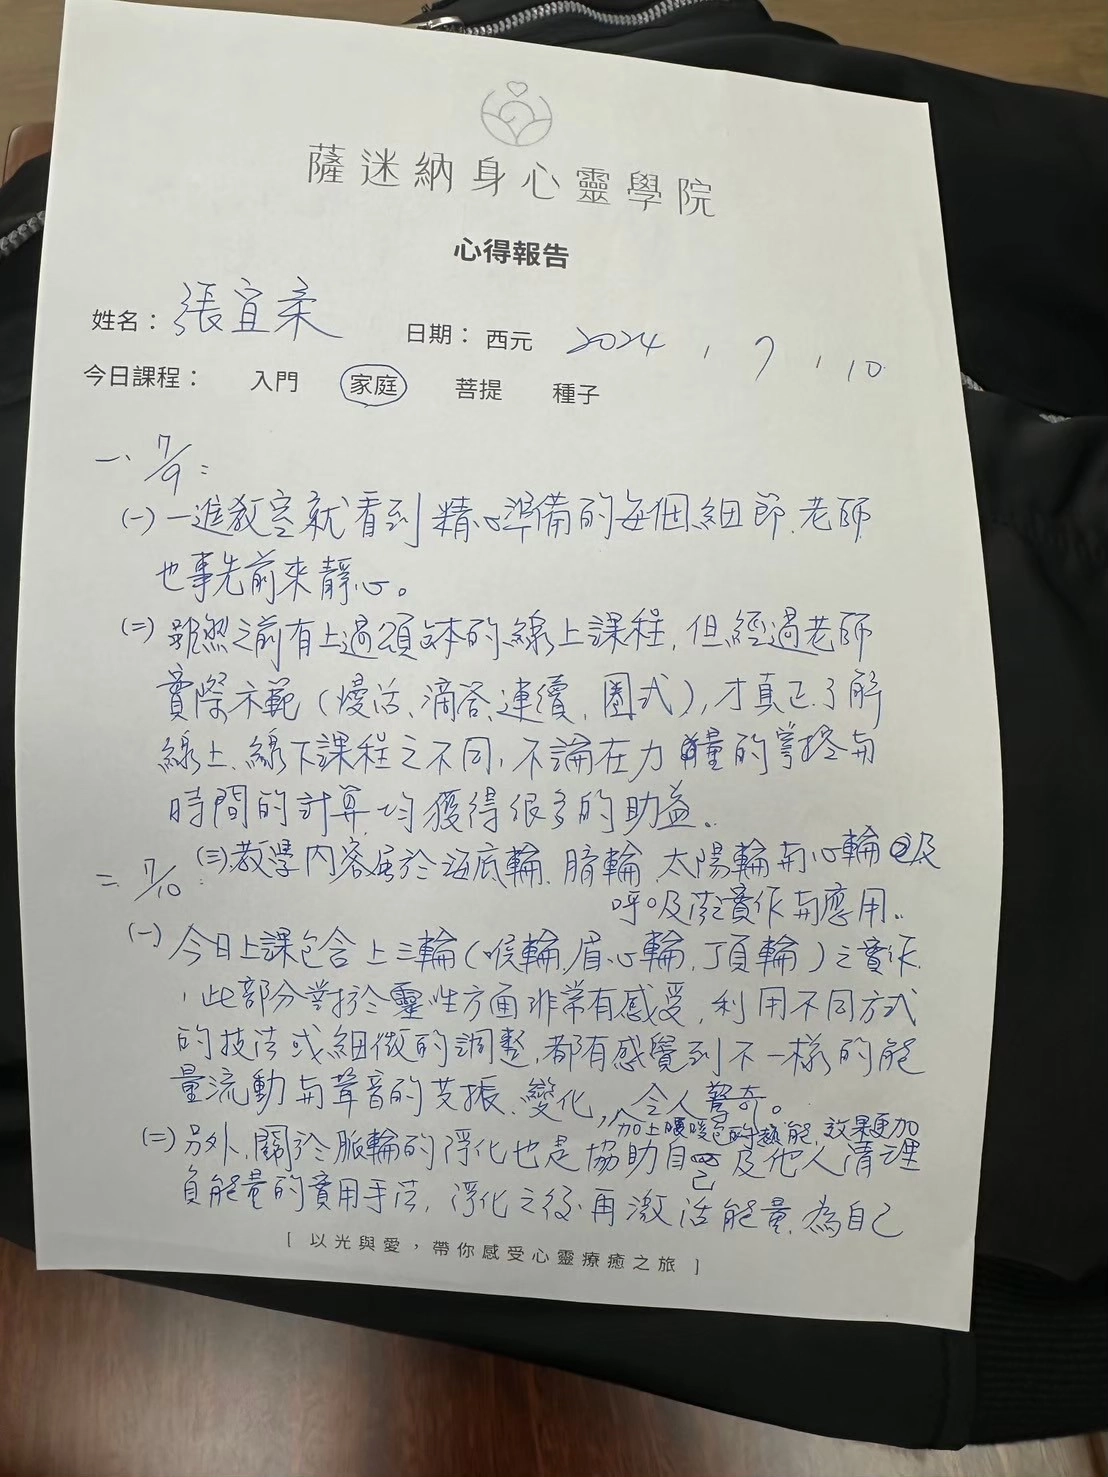 薩迷納身心靈學院
心得報告
姓名：張宜柔 日期：西元 2024 , 7 , 10
今日課程： 入門 家庭 菩提 種子
一、7/9：
(一) 一進教室就看到精心準備的每個細節、老師
也事先前來靜心。
(二) 雖然之前有上過頌缽的線上課程，但經過老師
實際示範（慢活、滴答、連續、圈式），才真正了解
線上、線下課程之不同，不論在力量的掌控與
時間的計算，均獲得很多的助益。
(三) 教學內容居於海底輪、臍輪、太陽輪與心輪及
呼吸法實作與應用。
二、7/10：
(一) 今日上課包含上三輪（喉輪、眉心輪、頂輪）之實作，
此部分對於靈性方面非常有感受，利用不同方式
的技法或細微的調整，都有感覺到不一樣的能
量流動與聲音的共振、變化，令人驚奇。
加上暖暖包的熱能，效果更加
(二) 另外，關於脈輪的淨化也是協助自己及他人清理
負能量的實用手法，淨化之後再激活能量，為自己
[ 以光與愛，帶你感受心靈療癒之旅 ]